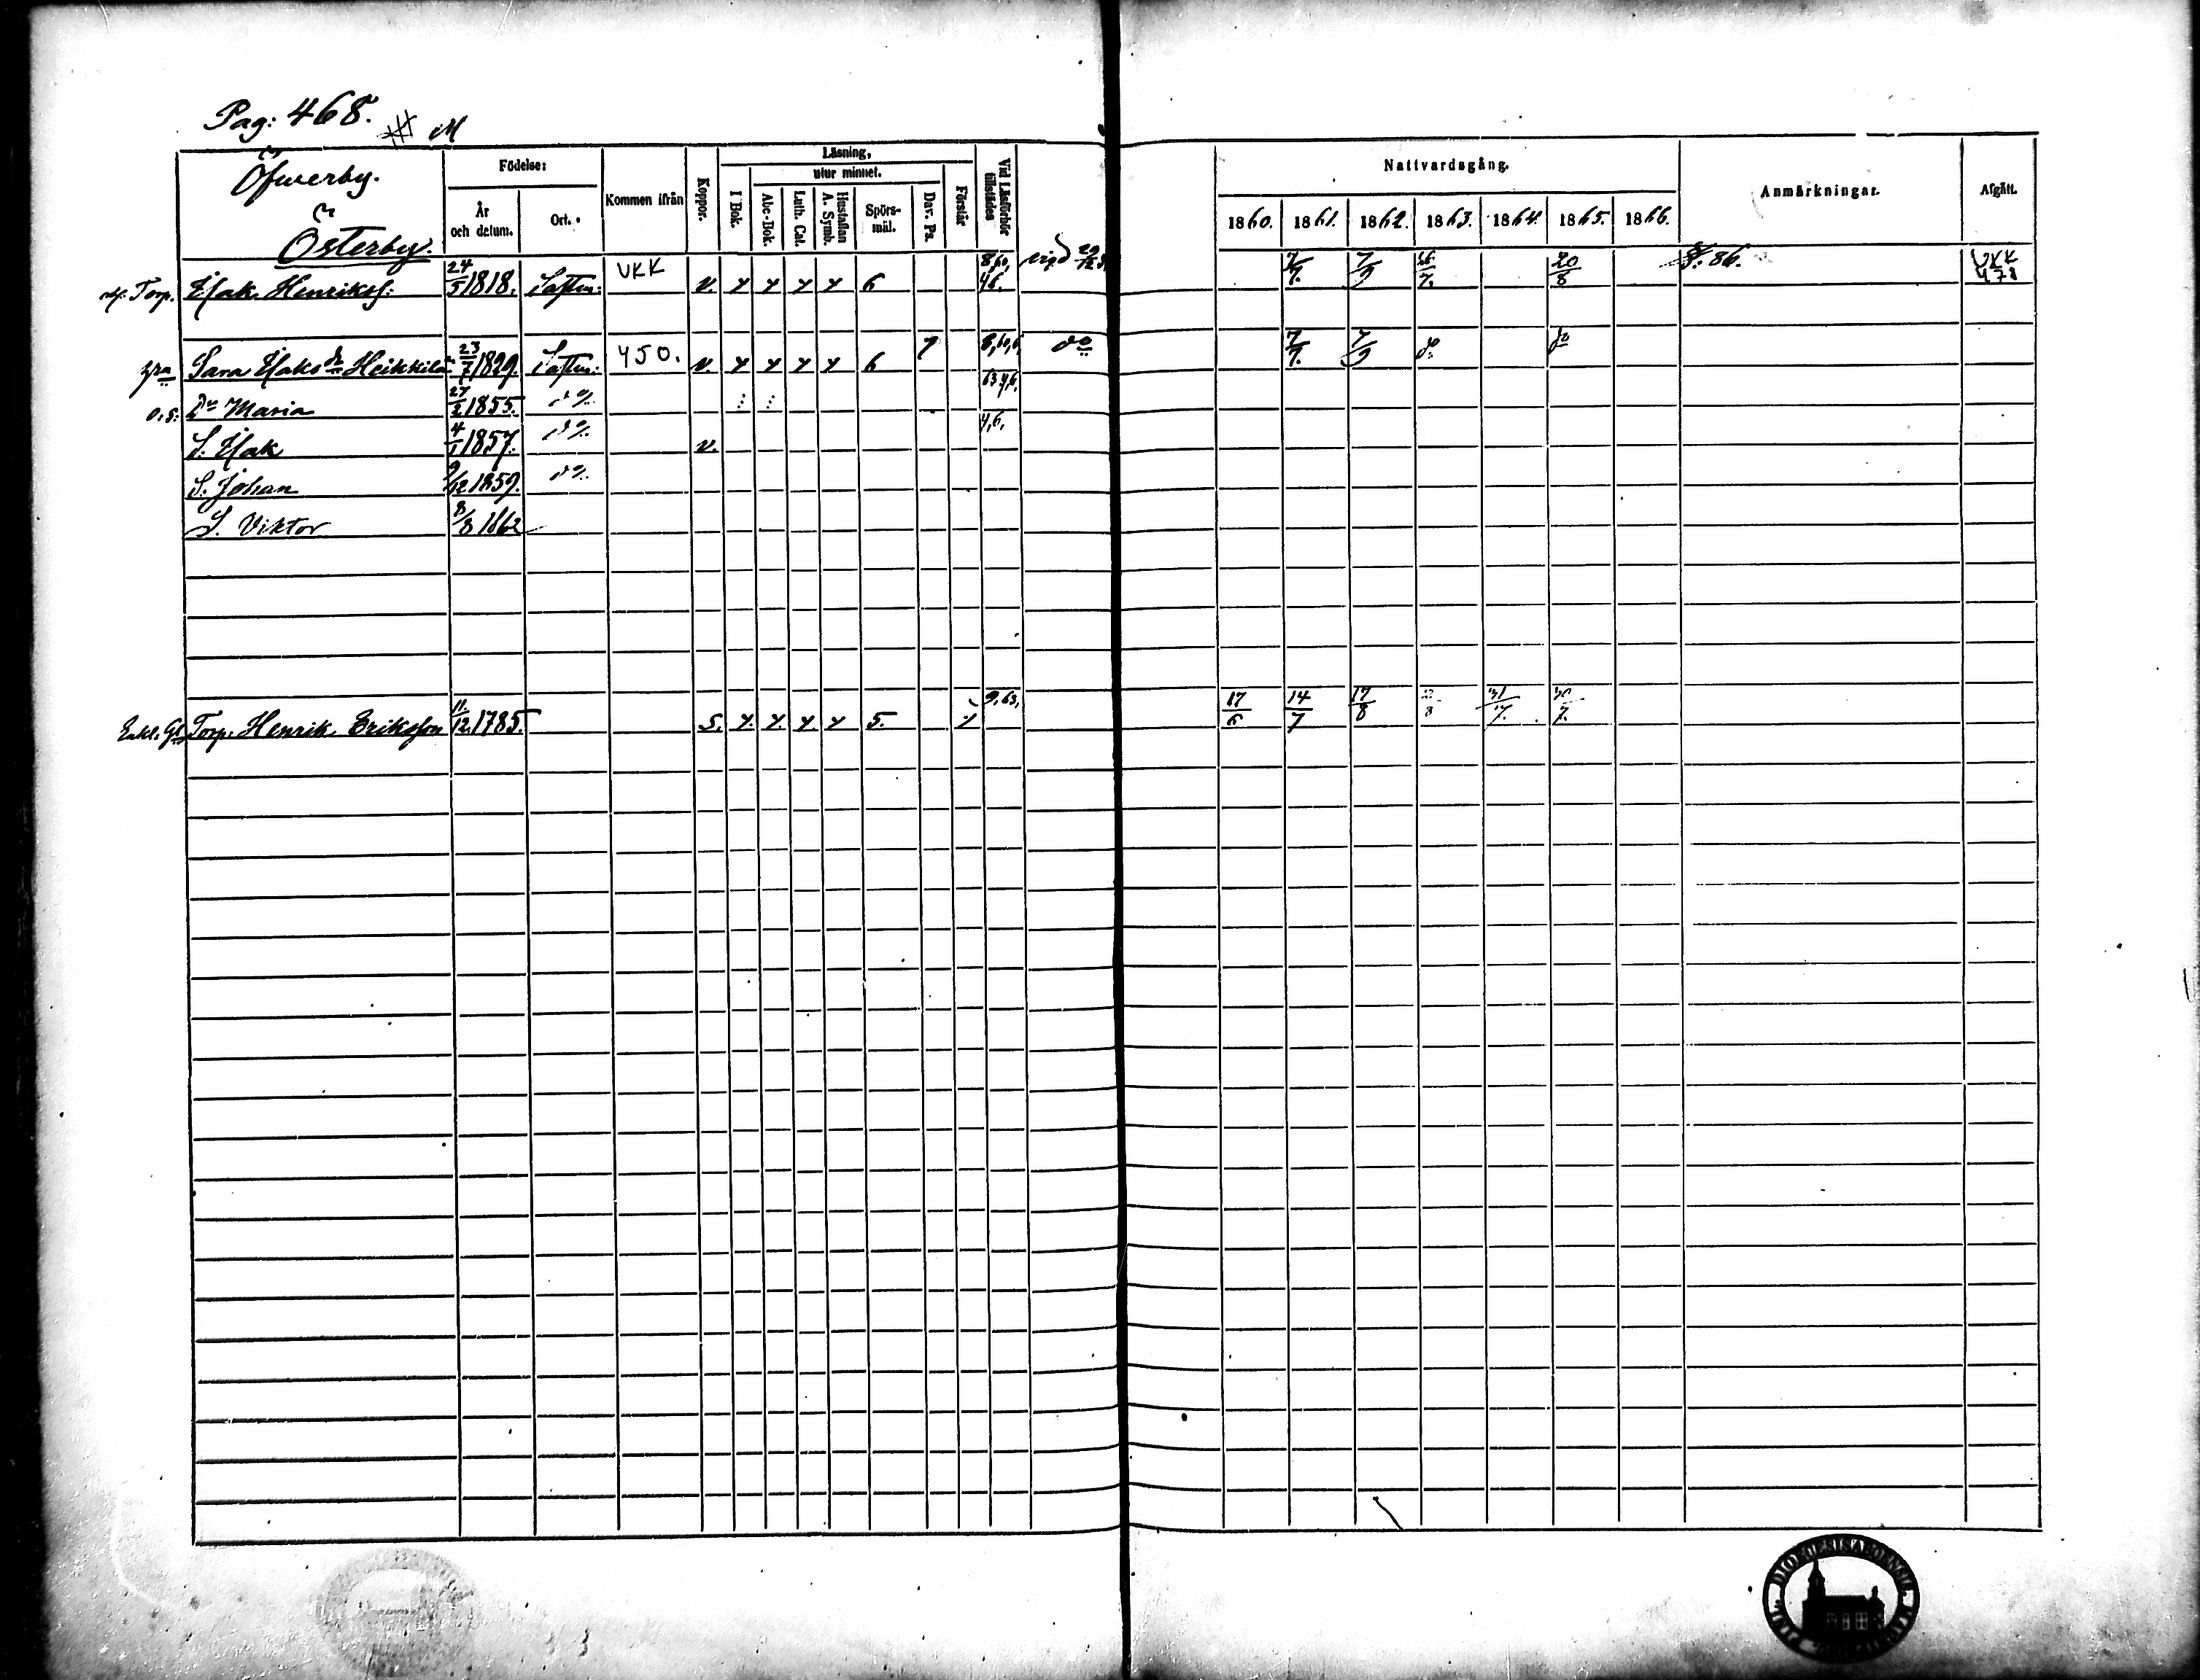 Pag: 468.
M
Öfwerby.
Österby.
Födelse:
År och datum.
Ort.
Kommen ifrån
Koppor.
Läsning,
utur minnet.
I Bok.
Abc-Bok.
Luth. Cat.
Hustaflan A. Symb.
Spörsmål.
Dav. Ps.
Förstår
Vid Läsförhör tillstädes
Nattvardsgång.
1860. 1861. 1862. 1863. 1864. 1865. 1866.
Anmärkningar.
Afgått.
Torp. Isak Henrikss: 24/5 1818. UKK v. 6 7/7. 7/9 26/7. 20/8 F. 86. UKK 478
Sara Isaksdr Heikkilä 23/7 1829. 450. v. 6 do 7/7. 7/9 do do
o.ä. Dr Maria 27/2 1855. do
S. Isak 4/1 1857. do v.
S. Johan 9/12 1859. do
S. Viktor 8/8 1862
Enkl. Gl Torp. Henrik Eriksson 11/12 1785. 5. 9,63, 17/6 14/7 17/8 31/7. 30/7.